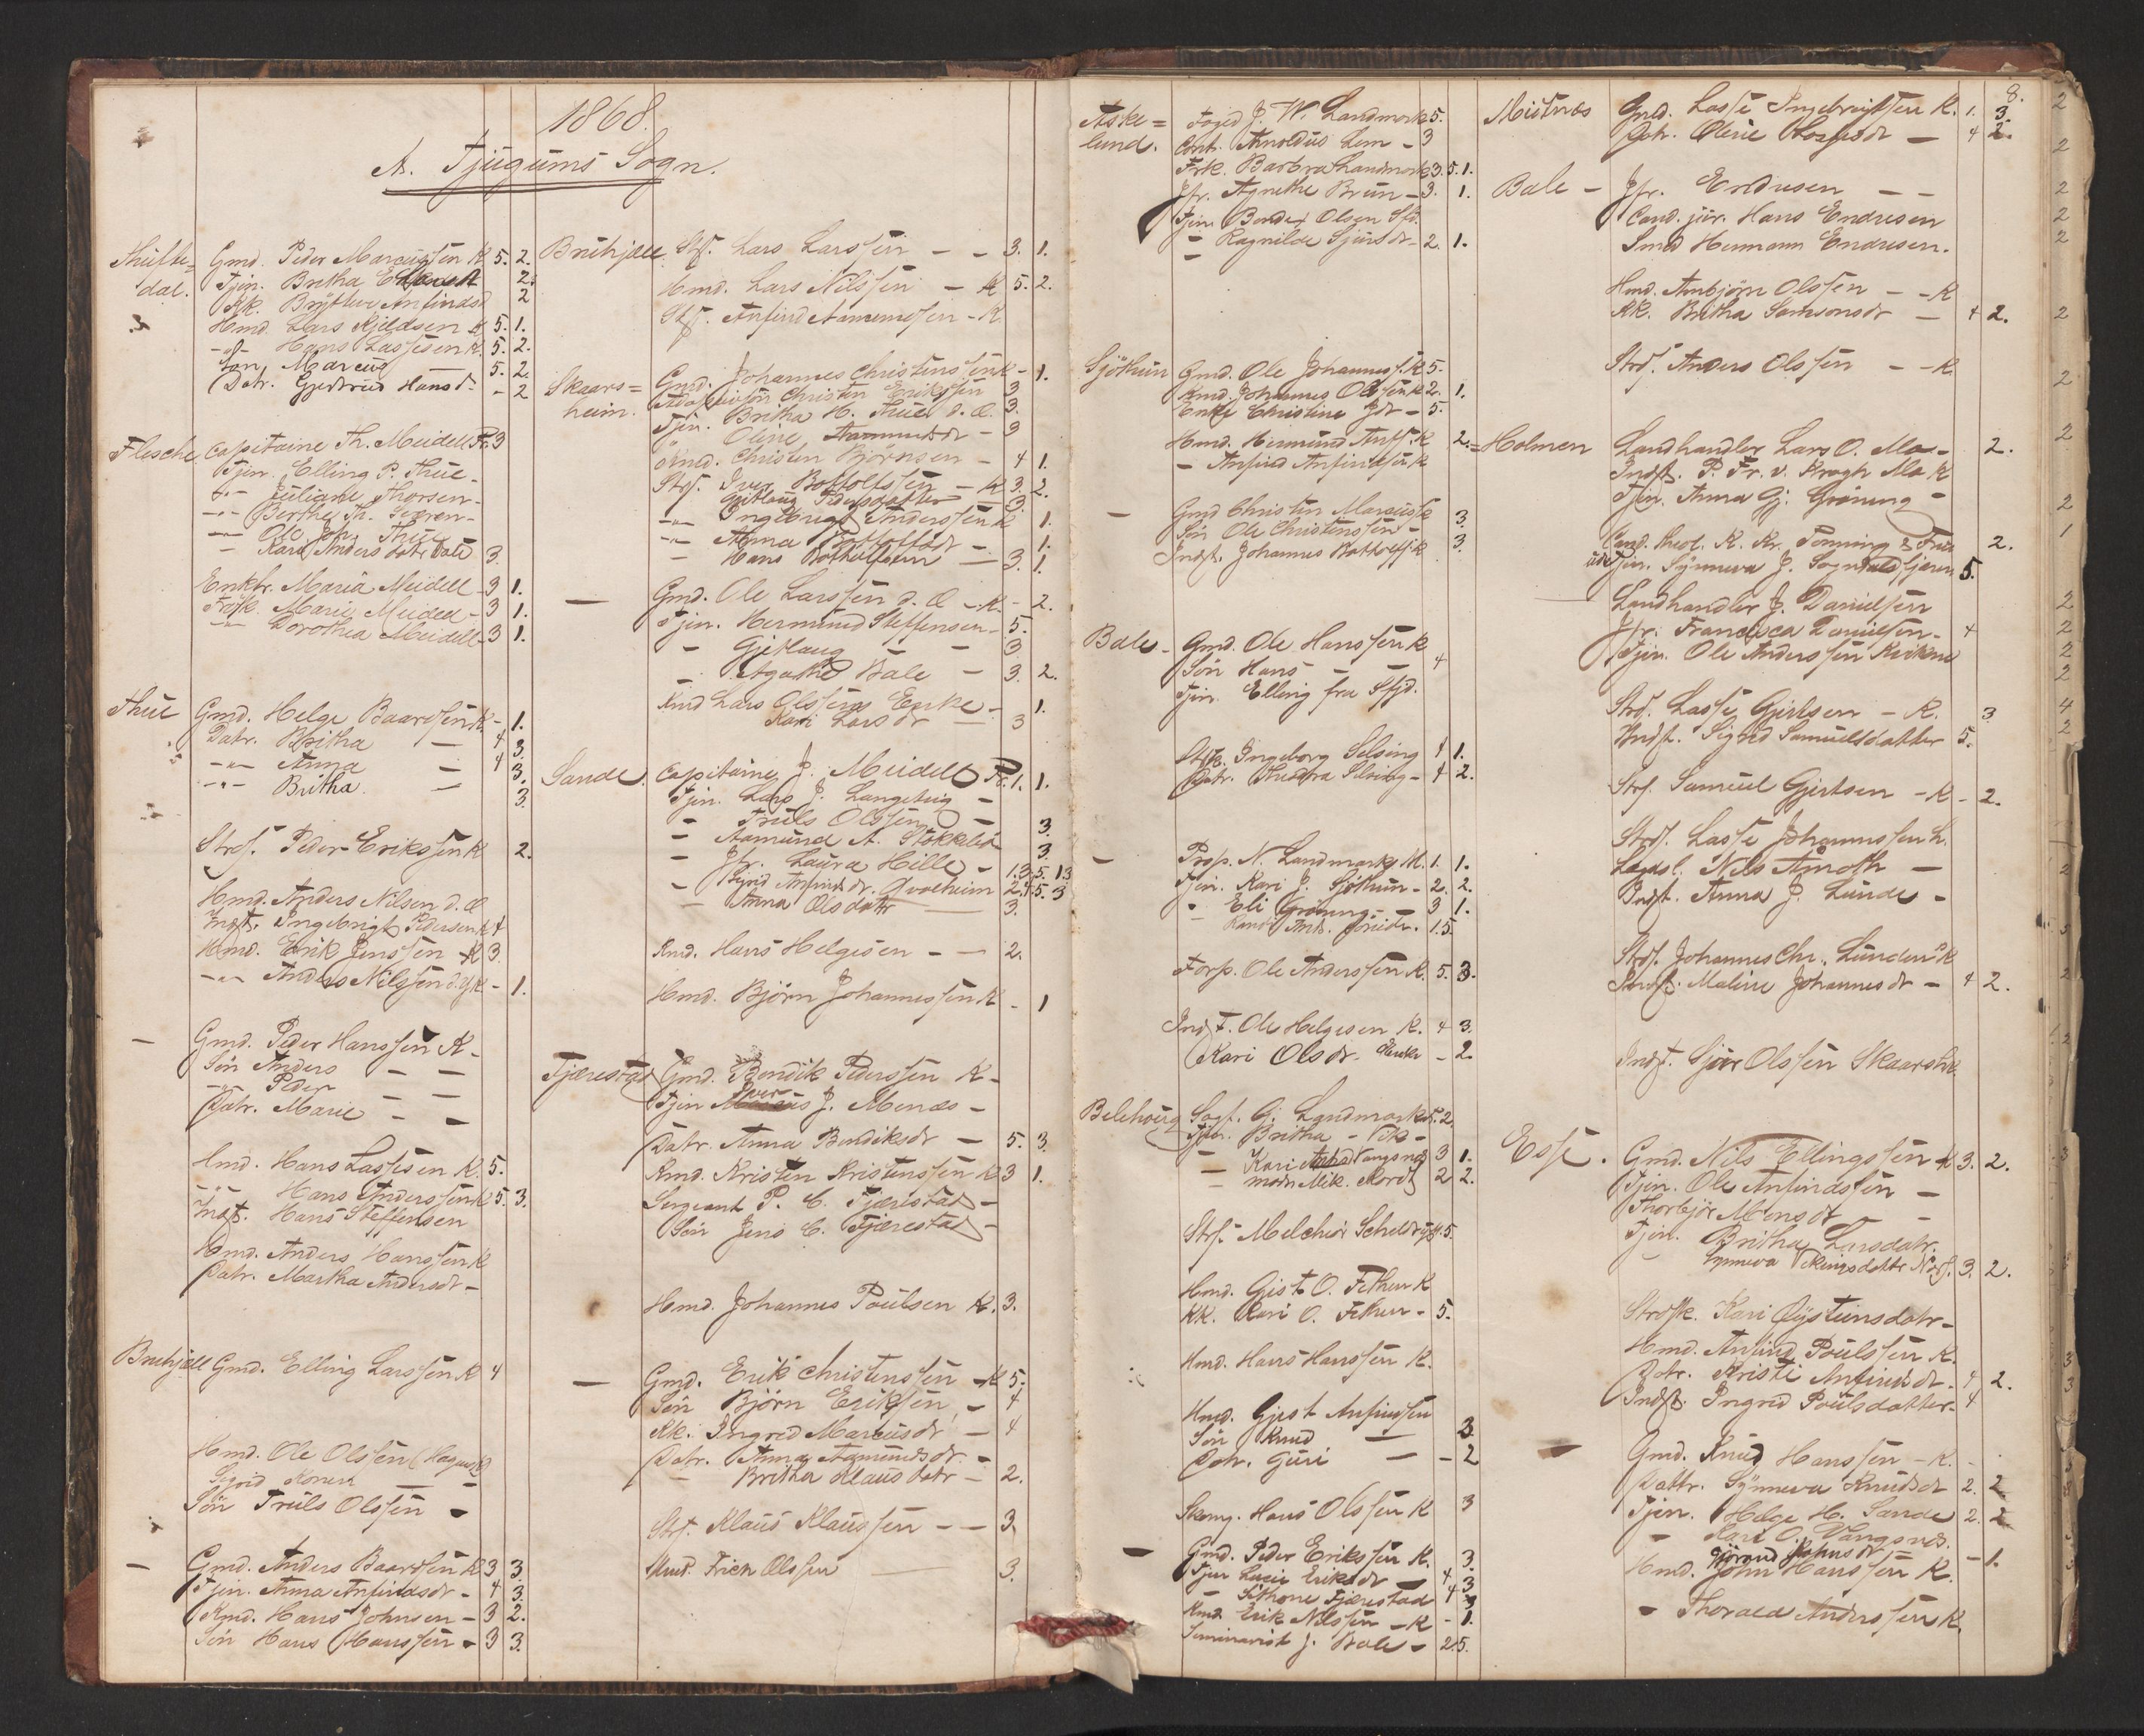 1868.
A. Tjugums Sogn.
Thufte=
dal.
Gmd. Peder Marcussen K 5. 2.
Tjen. Britha 2.
Kk. Anfindsd 2
Hmd. Lars Kjeldsen K 5. 1.
Hans Lassesen K. 5. 2.
Søn Marcus 5. 2.
Datr. Gjertrud Hansdr - 2
Flesche
Capitaine Th. Meidell Fr. 3
Tjen. Elling P. Thue -
-"- Juliane Thorsen -
-"- Berthe Th. Sværen -
-"- Ole Joh. Thue
- Kari Anders datr Bale 3.
Enkfr. Maria Meidell - 3 1.
Frøk. Marie Meidell - 3 1.
-"- Dorothea Meidell - 3 1.
Thue
Gmd. Helge Baardsen K - 1.
Datr. Britha - 4 3.
-"- Anna - 4 3.
-"- Britha - 3.
Strs. Peder Eriksen K 2.
Hmd. Anders Nilsen d. Æ
Indst. Ingebrigt Pedersen K 4
Hmd. Erik Jenssen - K 3
-"- Anders Nilssen d. y K - 1.
- Gmd. Peder Hanssen K -
Søn Anders - -
-"- Peder - -
Datr. Marie - -
Hmd. Hans Lassesen K. 5.
-"- Hans Anderssen K 5 3.
Indst. Hans Steffensen
Hmd. Anders Hanssen K
Datr. Martha Andersdr -
Bruhjell
Gmd. Elling Larssen K 4
Hmd. Ole Olssen (Hagen K)
Sigrid Konen - -
Søn Truls Olssen -
- Gmd. Anders Baardsen K 3 3.
Tjen. Anna Anfindsdr - 4 3.
Kmd. Hans Johnsen - 3 2.
Søn Hans Hanssen - 3 3.
Bruhjell
Strs. Lars Larssen - - 3. 1.
Hmd. Lars Nilssen - K 5. 2.
Strs. Anfind Aamundssen - K
Skaars=
heim.
Gmd. Johannes Christenssen K - 1.
Christen Erikssen 3
Tjen. Britha H. Thue d. Æ. 3.
Oline Aamundsdr - 3
Christen Bjørnsen - 4 1.
Strs. Iver Bottolfssen - K 3. 2.
Gjetlaug Pedersdatter 3.
-"- Ingebrigt Anderssen K 1.
-"- Anna Bottolfsdr - 1.
- Hans Bottolfssen - 3. 1.
- Gmd. Ole Larssen d. Æ - K. - 2.
Tjen. Hermund Steffensen - 5.
- Gjetlaug - - 3
- Agathe Bale - 3. 2.
Kmd Lars Olssens Enke - 1.
Kari Larsdr - 3
Sande
Capitaine J. Meidell Fr. 1. 1.
Tjen. Lars J. Langeteig -
- Truls Olssen -
- Aamund A. Stokkebø 3.
- Jfr. Laura Hille - 3.
- Sigrid Anfindsdr. Qvalheim
- Anna Olsdatr - 3.
Kmd. Hans Helgesen - - 2.
Hmd. Bjørn Johannessen K - 1
Tjærestad
Gmd. Bendik Pederssen K -
Tjen Iver J. Menæs -
Datr. Anna Bendiksdr - 5. 3.
Kmd. Kristen Kristenssen K 3 1.
Sergeant P. C. Tjærestad -
Søn Jens C. Tjærestad -
Hmd. Johannes Poulsen K. 3.
- Gmd. Erik Christenssen - K 5.
Søn Bjørn Eriksen - 4
Kk. Ingrid Marcusdr - 4
Datr. Anna Aamundsdr. -
- Britha Klausdatr - 2.
Strs. Klaus Klaussen - - 3.
Erich Olssen - 3.
Aske=
lund.
Foged J. W. Landmark 5.
Cont. Arnoldus Lem - 3
Frk. Barbra Landmark 3. 5. 1.
Jfr. Agnethe Brun - 3. 1.
Tjen. Borde Olsen Sfd.
- Ragnilde Sjursdr - 2. 1.
Sjøthun
Gmd. Ole Johanness. K 5.
Kmd. Johannes Olssen K 2. 1.
Enke Christine Jdr - 5.
Hmd. Hermund Anfs. K 2.
- Anfind Anfindsen K
- Gmd Christen Marcuss K 3.
Søn Ole Christenssen -
Indst. Johannes Bottolfs. K 3.
Bale -
Gmd. Ole Hanssen K
Søn Hans - - 4
Tjen. Elling fra Sfjd.
Ingeborg Selsing 4 1.
Datr. Theodora Selsing - 4 2.
- Prop. N. Landmark M. 1. 1.
Tjen. Kari J. Sjøthun - 2. 2.
" Eli Grøning - 3 1.
1. 5.
Forp. Ole Anderssen K. 5. 3.
Indst. Ole Helgesen K. 4 3.
Kari Olsdr. - 2.
Belehoug
Sagf. G. Landmark 5. 2.
Tjen. Britha - Vik -
- Kari Vangsnæs 3 1.
- 2 2.
Strs. Melcher 5.
Hmd. Gjest O. Fethun K
Kk. Kari O. Fethun - 5.
Hmd. Hans Hanssen K.
Hmd. Gjest Anfindsen
Søn Knud - 3.
Datr. Guri - - 2
Skomg. Hans Olssen K 3
- Gmd. Peder Erikssen K. 3.
Tjen Lucie Eriksdr - 4 3
- Tjærestad 4 3
Kmd. Erik Nilssen - K - 1.
Seminarist J. Bale - 2. 5.
8.
Meitnæs
Gmd. Lasse Ingebrigtsen K. 1. 3.
Datr. Oline Lassesdr - 4 2.
Bale -
Jfr. Endresen - -
Cand. jur. Hans Endresen
Smed Hermann Endresen.
Hmd. Arnbjørn Olssen - - K
Kk. Britha Samsonsdr - 4 2.
Strs. Anders Olssen - - K
Holmen
Landhandler Lars O. Mo - 2.
Indst. P. Fr. v. Krogh Mo K
Tjen. Anna Gj. Grøning -
Cand. theol. K. Kr. Tønning & Frue 2.
Tjen. Synneva J. Sogndalsfjæren 5.
Landhandler J. Danielsen
Jfr. Francisca Danielsen - 4
Tjen. Ole Anderssen
Strs. Lasse Gjertsen - K. 3
Indst. Sigrid Samuelsdatter 5.
Strs. Samuel Gjertsen - K - 2.
Strs. Lasse Johannessen K.
Nils Amoth -
Indst. Anna J. Lunde -
Strs. Johannes Chr. Lunden K
Indst. Maline Johannesdr - 4 2.
Indst. Sjur Olssen Skaarsh.
Esse.
Gmd. Nils Ellingssen K 3. 2.
Tjen. Ole Anfindssen -
Thorbjør Monsdr - -
Tjen. Britha Larsdatr.
Synneva Vikingsdatter 3. 2.
Kari Øysteinsdatr -
Hmd. Anfind Poulssen K.
Datr. Kristi Anfindsdr. 4 2.
Indst. Ingrid Poulsdatter - 4
- Gmd. Knud Hanssen - K. -
Dattr. Synneva Knudsdr 2. 2.
Tjen. Helge H. Sande 2. 2
- Kari O. Vangsnæs.
Hmd. John Hanssen K. - 1.
- Thorald Anderssen K.